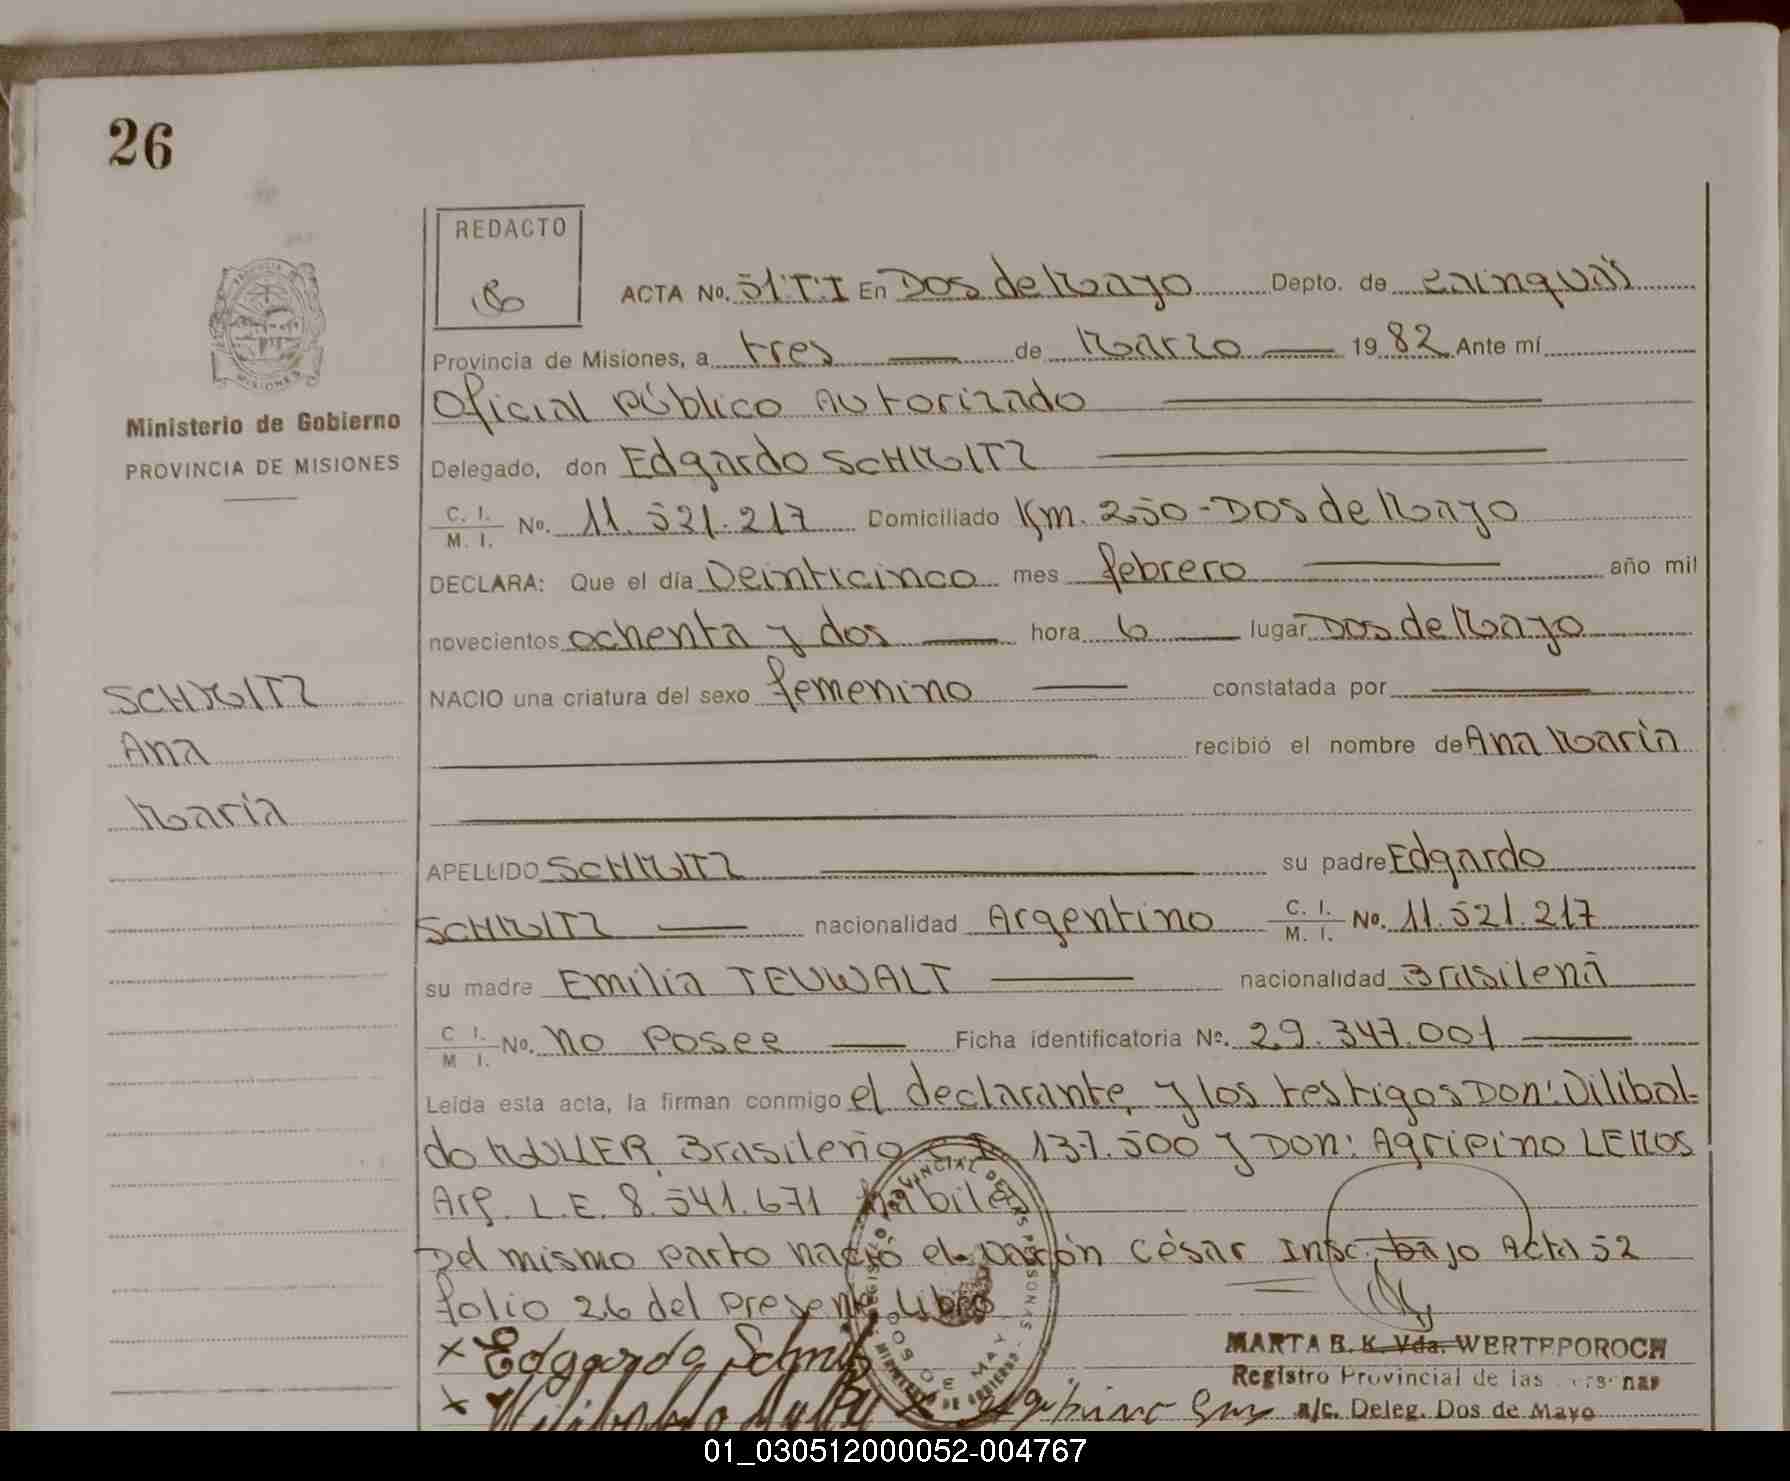 26
REDACTO
ACTA No. 51.T.I En Dos de Mayo Depto. de Cainguás
Provincia de Misiones, a tres de Marzo 1982 Ante mí
Oficial Público Autorizado
MISIONES
Ministerio de Gobierno
PROVINCIA DE MISIONES
Delegado, don Edgardo SCHMITZ
C. I. M. I. No. 11.521.217 Domiciliado Km. 250 - Dos de Mayo
DECLARA: Que el día Veinticinco mes febrero año mil
novecientos ochenta y dos hora 6 lugar Dos de Mayo
NACIO una criatura del sexo femenino constatada por
recibió el nombre de Ana María
SCHMITZ
Ana
María
APELLIDO SCHMITZ su padre Edgardo
SCHMITZ nacionalidad Argentino C. I. M. I. No. 11.521.217
su madre Emilia TEUWALT nacionalidad Brasileña
C. I. M. I. No. no posee Ficha identificatoria No. 29.347.001
Leída esta acta, la firman conmigo el declarante y los testigos Don: Vilibal-
do MULLER, Brasileño 137.500 y Don: Agripino LEMOS
Arg. L.E. 8.541.671 hábiles
Del mismo parto nació el varón César Insc. bajo Acta 52
folio 26 del presente Libro
x Edgardo Schmitz
MARTA B. K. Vda. WERTEPOROCH
Registro Provincial de las
x a/c. Deleg. Dos de Mayo
01_030512000052-004767